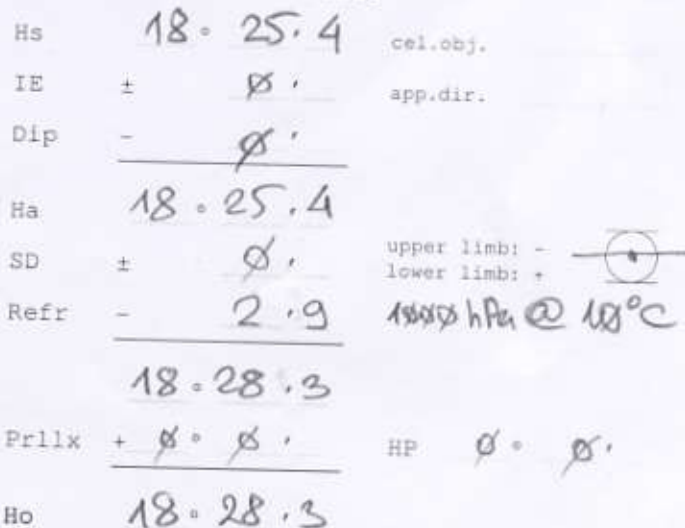 Hs 18° 25.4 cel.obj.
IE ± Ø. app.dir.
Dip - Ø.
Ha 18° 25.4
SD ± Ø. upper limb: -
lower limb: +
Refr - 2.9 1ØØØ hPa @ 1Ø°C
18° 28.3
Prllx + Ø° Ø. HP Ø° Ø.
Ho 18° 28.3